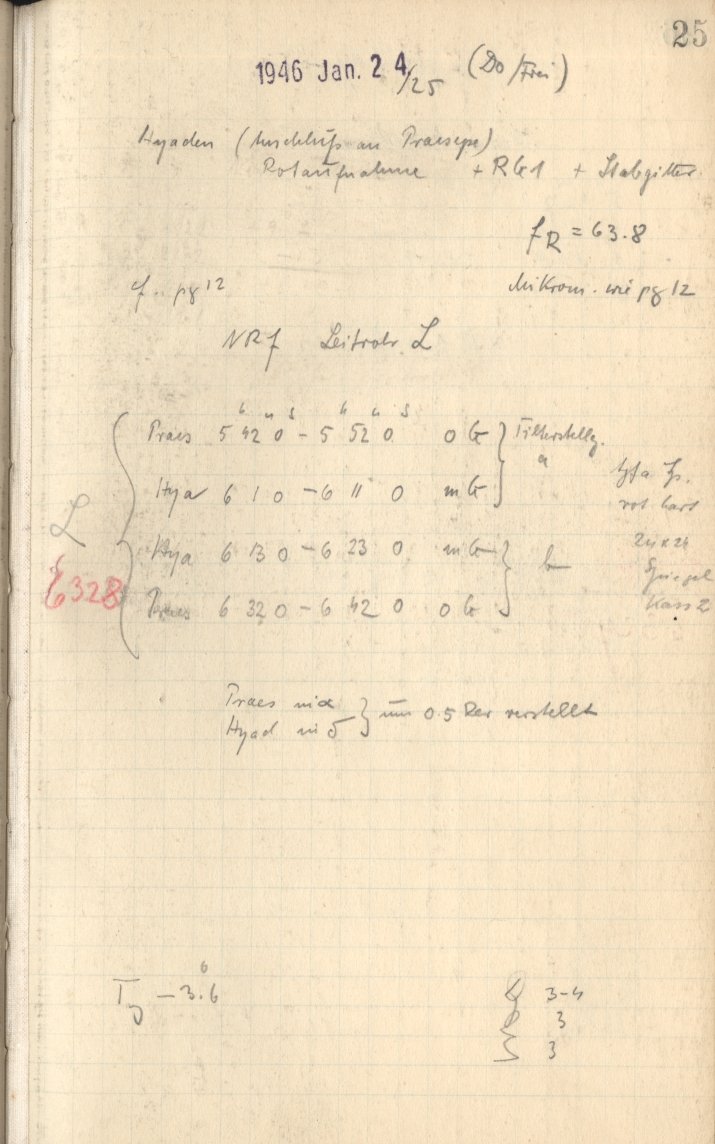 25
1946 Jan. 24/25 (Do/Frei)
Hyaden (Anschluß an Praesepe)
Rotaufnahme + RG1 + Stabgitter
f R = 63.8
cf. pg 12 Mikrom. wie pg 12
NRf Leitrohr L
h m s h m s
Praes 5 42 0 – 5 52 0 o G } Filterstellg.
a
Hya 6 1 0 – 6 11 0 m G
Agfa
rot hart
L
Hya 6 13 0 – 6 23 0 m G } b
24 x 24
Spiegel
6328
Praes 6 32 0 – 6 42 0 o G
Kass 2
Praes in α } um 0.5 verstellt
Hyad in δ
T – 3.6
3-4
3
3